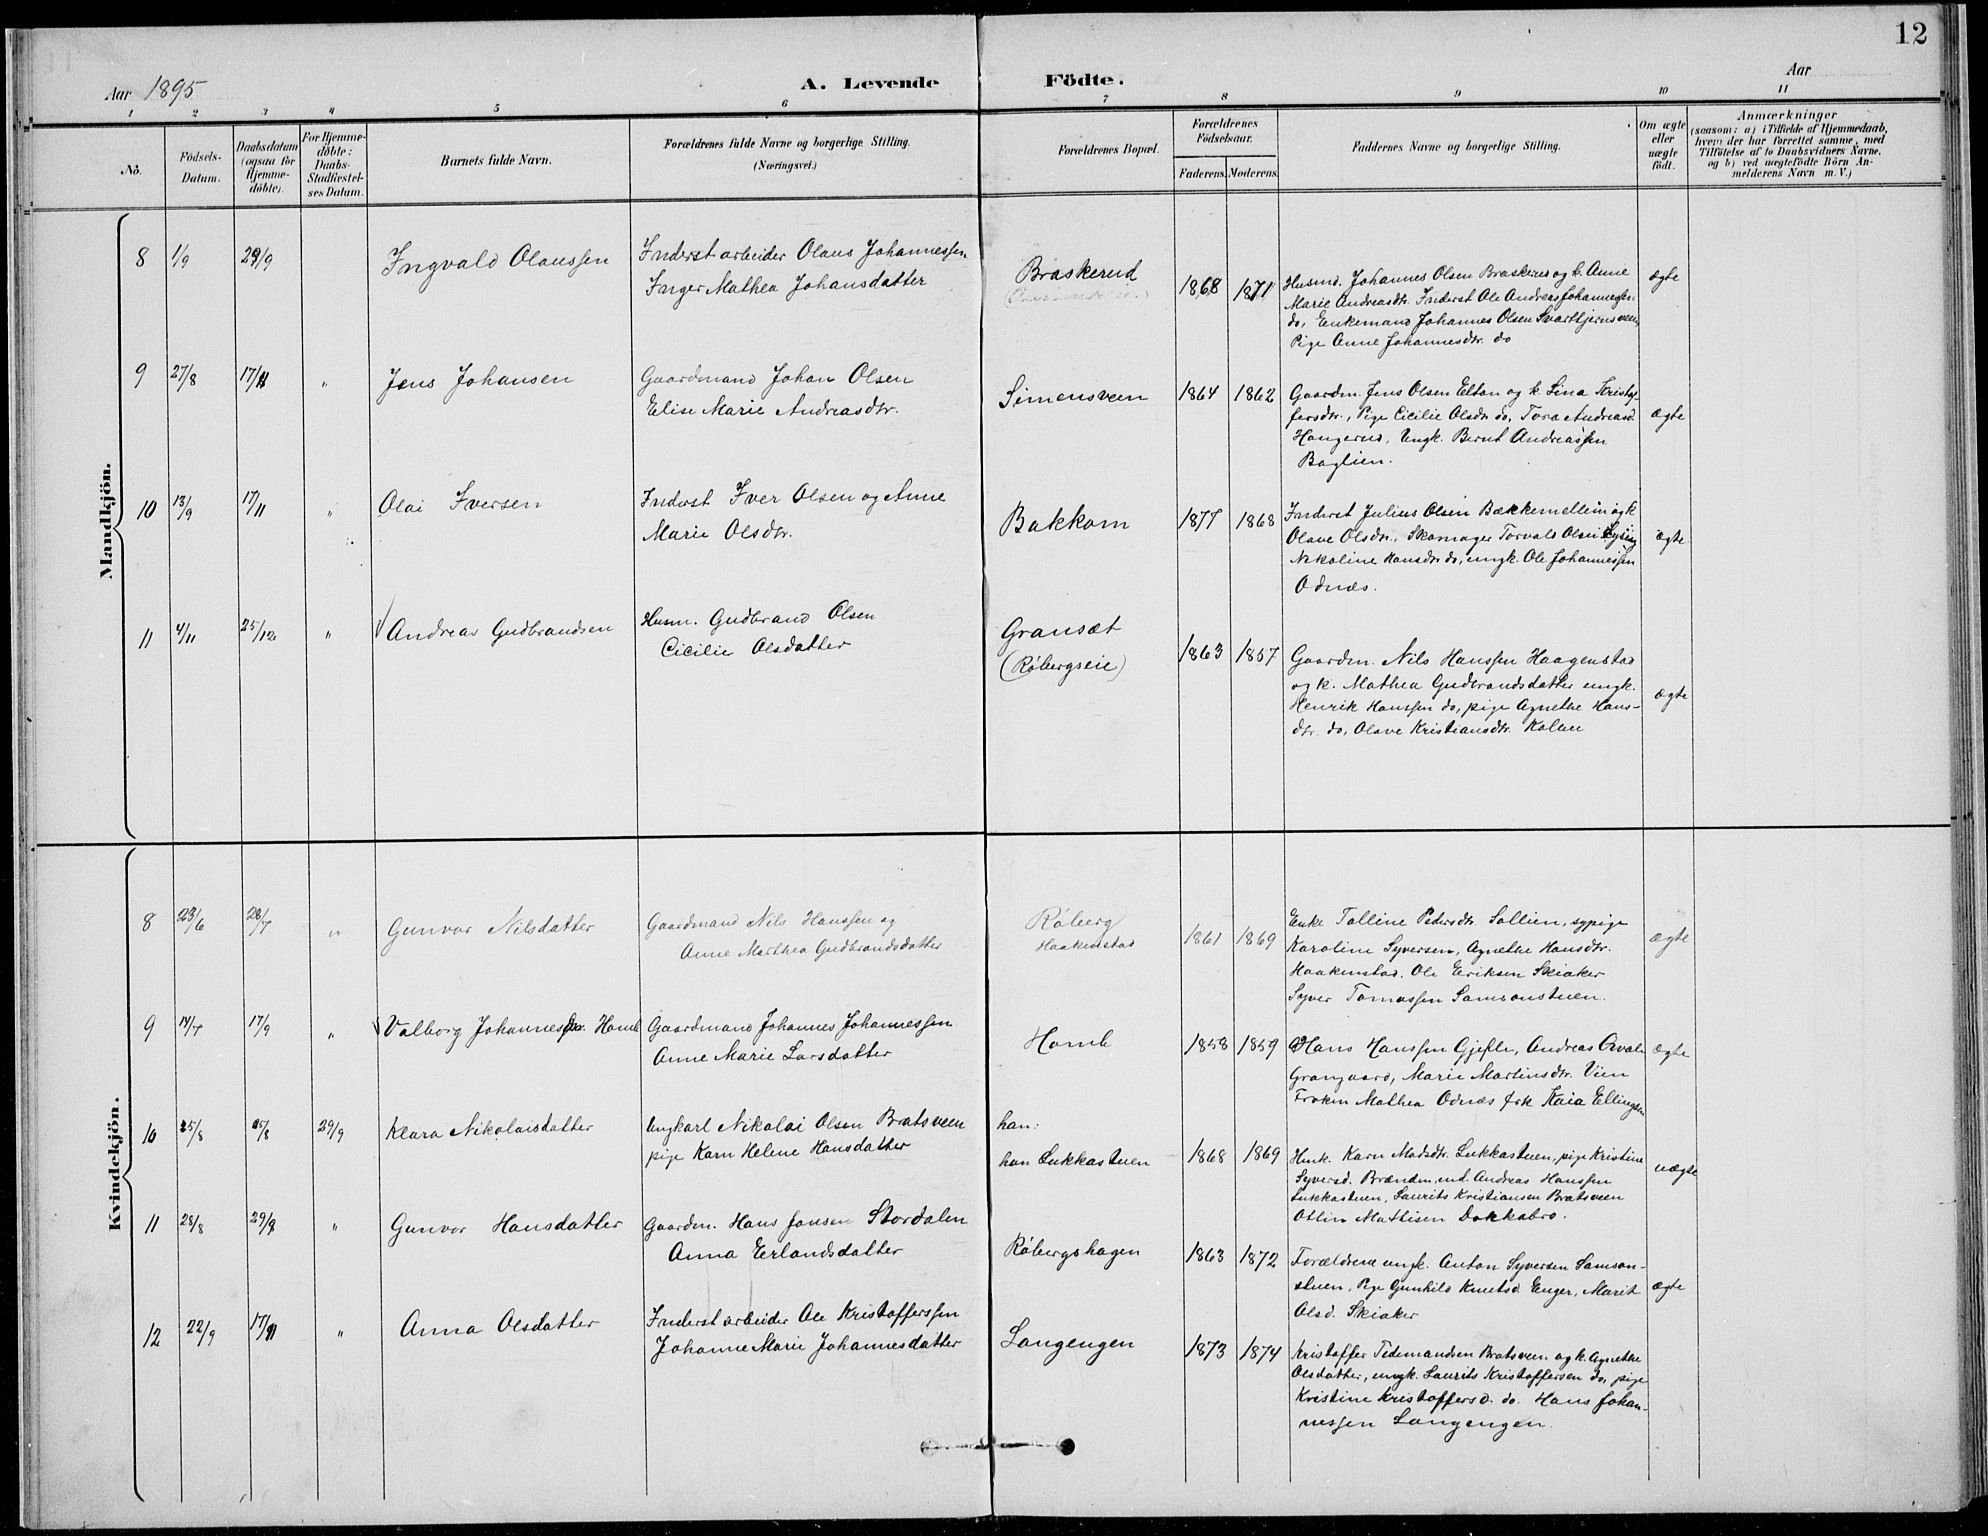 12
Aar 1895
A. Levende Födte.
Aar
1 2 3 4 5 6 7 8 9 10 11
No.
Födsels-Datum.
Daabsdatum (ogsaa for Hjemme-döbte).
For Hjemme-döbte: Daabs-Stadfæstel-ses Datum.
Barnets fulde Navn.
Forældrenes fulde Navne og borgerlige Stilling.
(Næringsvei.)
Forældrenes Bopæl.
Forældrenes Födselsaar.
Faderens. Moderens.
Faddernes Navne og borgerlige Stilling.
Om ægte eller uægte födt.
Anmærkninger
(saasom: a) i Tilfælde af Hjemmedaab,
hvem der har forrettet samme, med
Tilföielse af to Daabsvidners Navne.
og b) ved uegtefödte Börn An-
melderens Navn m. V.)
Mandkjön.
8 1/9 29/9 Ingvald Olaussen
Inderst arbeider Olaus Johannessen
Inger Mathea Johansdatter
Braskerud
1868 1871
Husmd. Johannes Olsen Braskerud og k. Anne
Marie Andreasdtr. Inderst Ole Andreas Johannessen
do, Enkemand Johannes Olsen Svarttjernsveen,
Pige Anne Johannesdtr. do
ægte
9 27/8 17/11 " Jens Johansen
Gaardmand Johan Olsen
Elise Marie Andreasdtr.
Simensveen
1864 1862
Gaardm. Jens Olsen Elton og k. Lina Kristof-
fersdtr., Pige Cicilie Olsdtr do, Tora Andreasd.
Haugerud, Ungk. Bernt Andreassen
Baglien.
ægte
10 13/9 17/11 " Olai Iversen
Inderst Iver Olsen og Anne
Marie Olsdtr.
Bakkom
1877 1868
Inderst Julius Olsen Bækkemellem og k
Olave Olsdtr., Skomager Torvald Olsen
Nikoline Hansdtr do, ungk. Ole Johannessen
Odnæs.
ægte
11 4/11 25/12 " Andreas Gudbrandsen
Husm. Gudbrand Olsen
Cicilie Olsdatter
Gransæt
(Röbergseie)
1863 1857
Gaardm. Nils Hanssen Haagenstad
og k. Mathea Gudbrandsdatter ungk.
Henrik Hanssen do, pige Agnethe Hans-
dtr. do, Olave Kristiansdtr. Kollen
ægte
Kvindekjön.
8 23/6 28/7 " Gunvor Nilsdatter
Gaardmand Nils Hanssen og
Anne Marthea Gudbrandsdatter
Röberg
Haakenstad
1861 1869
Enke Talline Pedersdtr. Sollien, sypige
Karoline Syversen, Agnethe Hansdtr.
Haakenstad, Ole Eriksen Skiaker
Syver Tomassen Samsonstuen.
ægte
9 14/7 17/9 " Valborg Johannessen Homb
Gaardmand Johannes Johannessen
Anne Marie Larsdatter
Homb
1858 1859
Hans Hanssen Gjefle, Andreas
Grangaard, Marie Martinsdtr. Vien
Frøken Mathea Odnæs frk Kaia Ellingsen
ægte
10 25/8 25/8 29/9 Klara Nikolaisdatter
Ungkarl Nikolai Olsen Bratsveen
pige Karn Helene Hansdatter
han:
hun Lukkastuen
1868 1869
Huk. Karn Madsdtr. Lukkastuen, pige Kristine
Syversd. Brænden, md. Andreas Hanssen
Lukkastuen, Laurits Kristiansen Bratsveen
Otlin Mathisen Dokkabro.
uægte
11 28/8 29/9 " Gunvor Hansdatter
Gaardm. Hans Jansen Stordalen
Anna Erlandsdatter
Röbergshagen
1863 1872
Forældrene ungk. Anton Syversen Samson-
stuen, Pige Gunhild Knutsd. Enger, Marit
Olsd. Skiaker
ægte
12 22/9 17/11 " Anna Olsdatter
Inderst arbeider Ole Kristofferssen
Johanne Marie Johannesdatter
Langengen
1873 1874
Kristoffer Tidemandsen Bratsveen og k. Agnethe
Olsdatter, ungk. Laurits Kristoffersen do, pige
Kristine Kristoffersd. do. Hans Johan-
nessen Langengen.